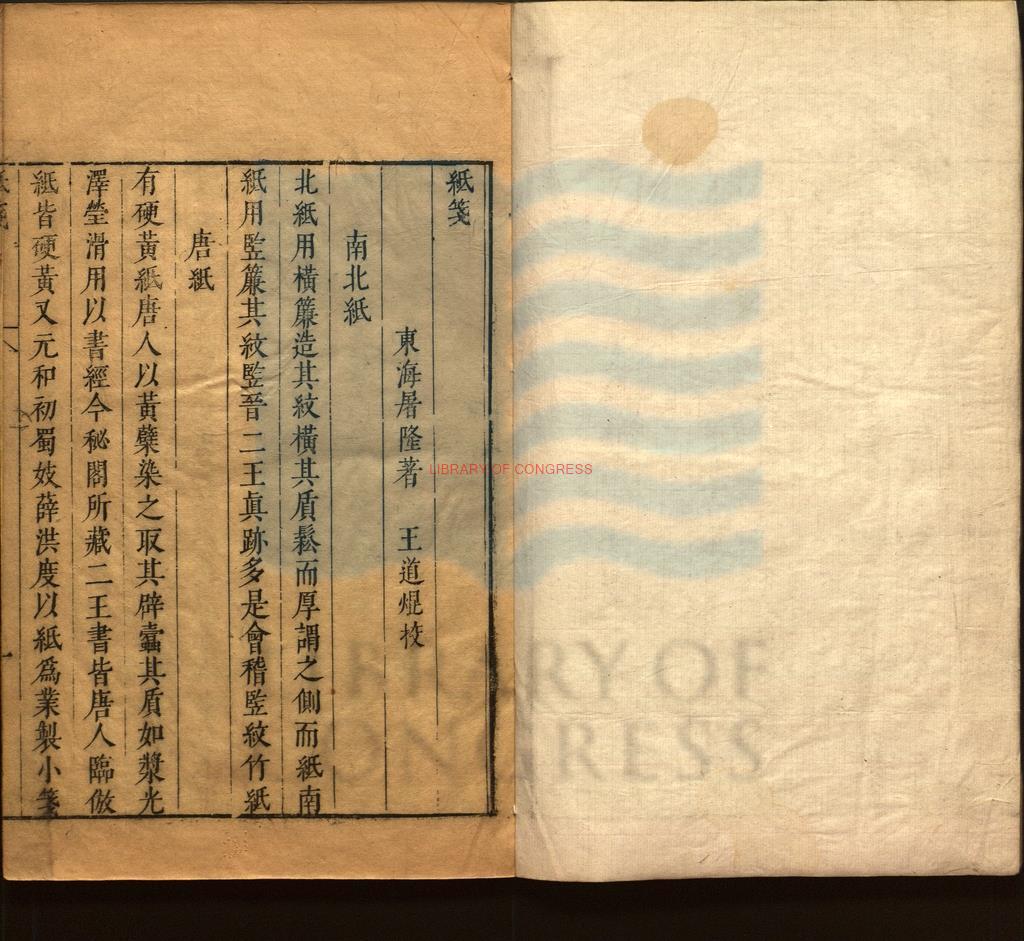 紙箋
東海屠隆著　王道焜挍
南北紙
北紙用橫簾造其紋橫其質鬆而厚謂之側而紙南
紙用監簾其紋監晉二王眞跡多是會稽監紋竹紙
唐紙
有硬黃紙唐人以黃蘗染之取其辟蠹其質如漿光
澤瑩滑用以書經今秘閣所藏二王書皆唐人臨倣
紙皆硬黃又元和初蜀妓薛洪度以紙爲業製小箋
紙箋
LIBRARY OF CONGRESS
LIBRARY OF
CONGRESS